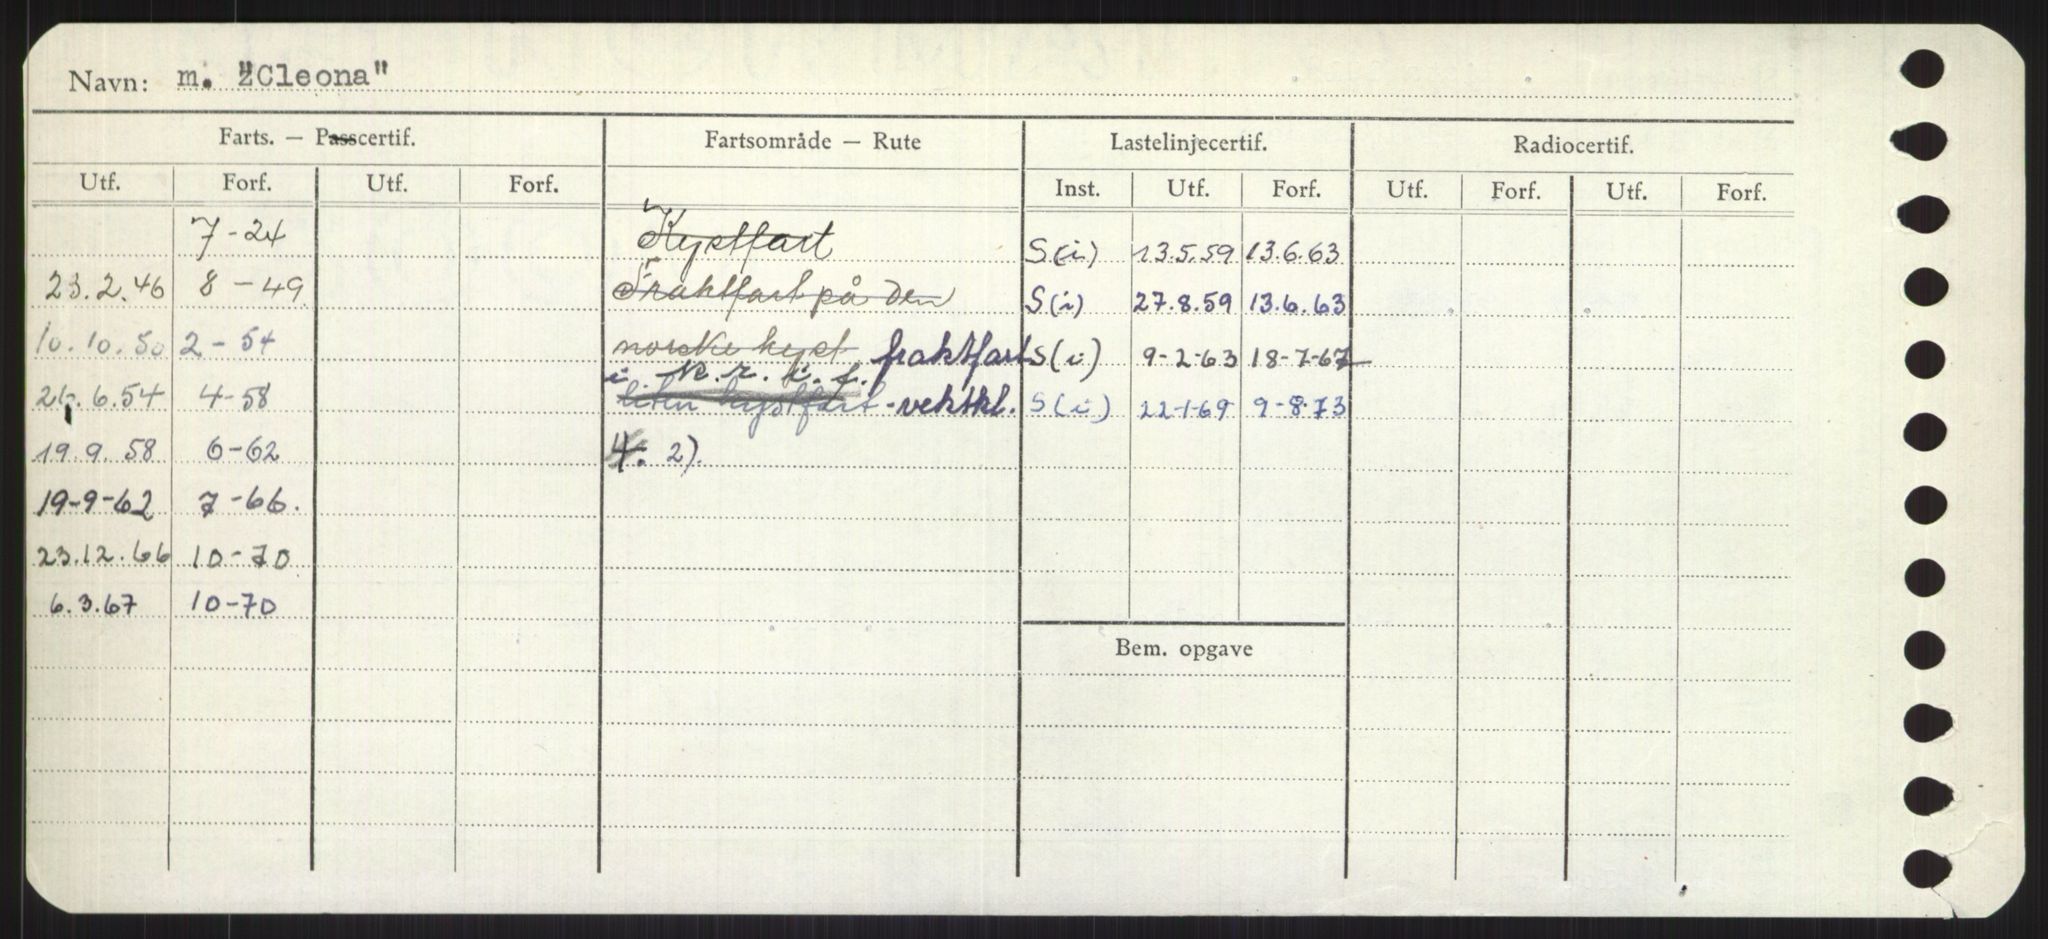 Navn: m. "Cleona"
Farts. — Passcertif. Fartsområde — Rute Lastelinjecertif. Radiocertif.
Utf. Forf. Utf. Forf. Inst. Utf. Forf. Utf. Forf. Utf. Forf.
7-24 Kystfart S(i) 13.5.59 13.6.63
23.2.46 8-49 Fraktfart på den S(i) 27.8.59 13.6.63
10.10.50 2-54 norske kyst fraktfart S(i) 9-2-63 18-7-67
i
6.54 4-58 liten kystfart - vektkl. S(i) 22-1-69 9-8-73
19.9.58 6-62 4. 2).
19-9-62 7-66.
23.12.66 10-70
6.3.67 10-70
Bem. opgave